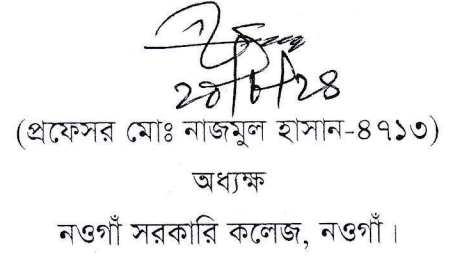 (প্রফেসর মোঃ নাজমুল হাসান-৪৭১৩)
অধ্যক্ষ
নওগাঁ সরকারি কলেজ, নওগাঁ।